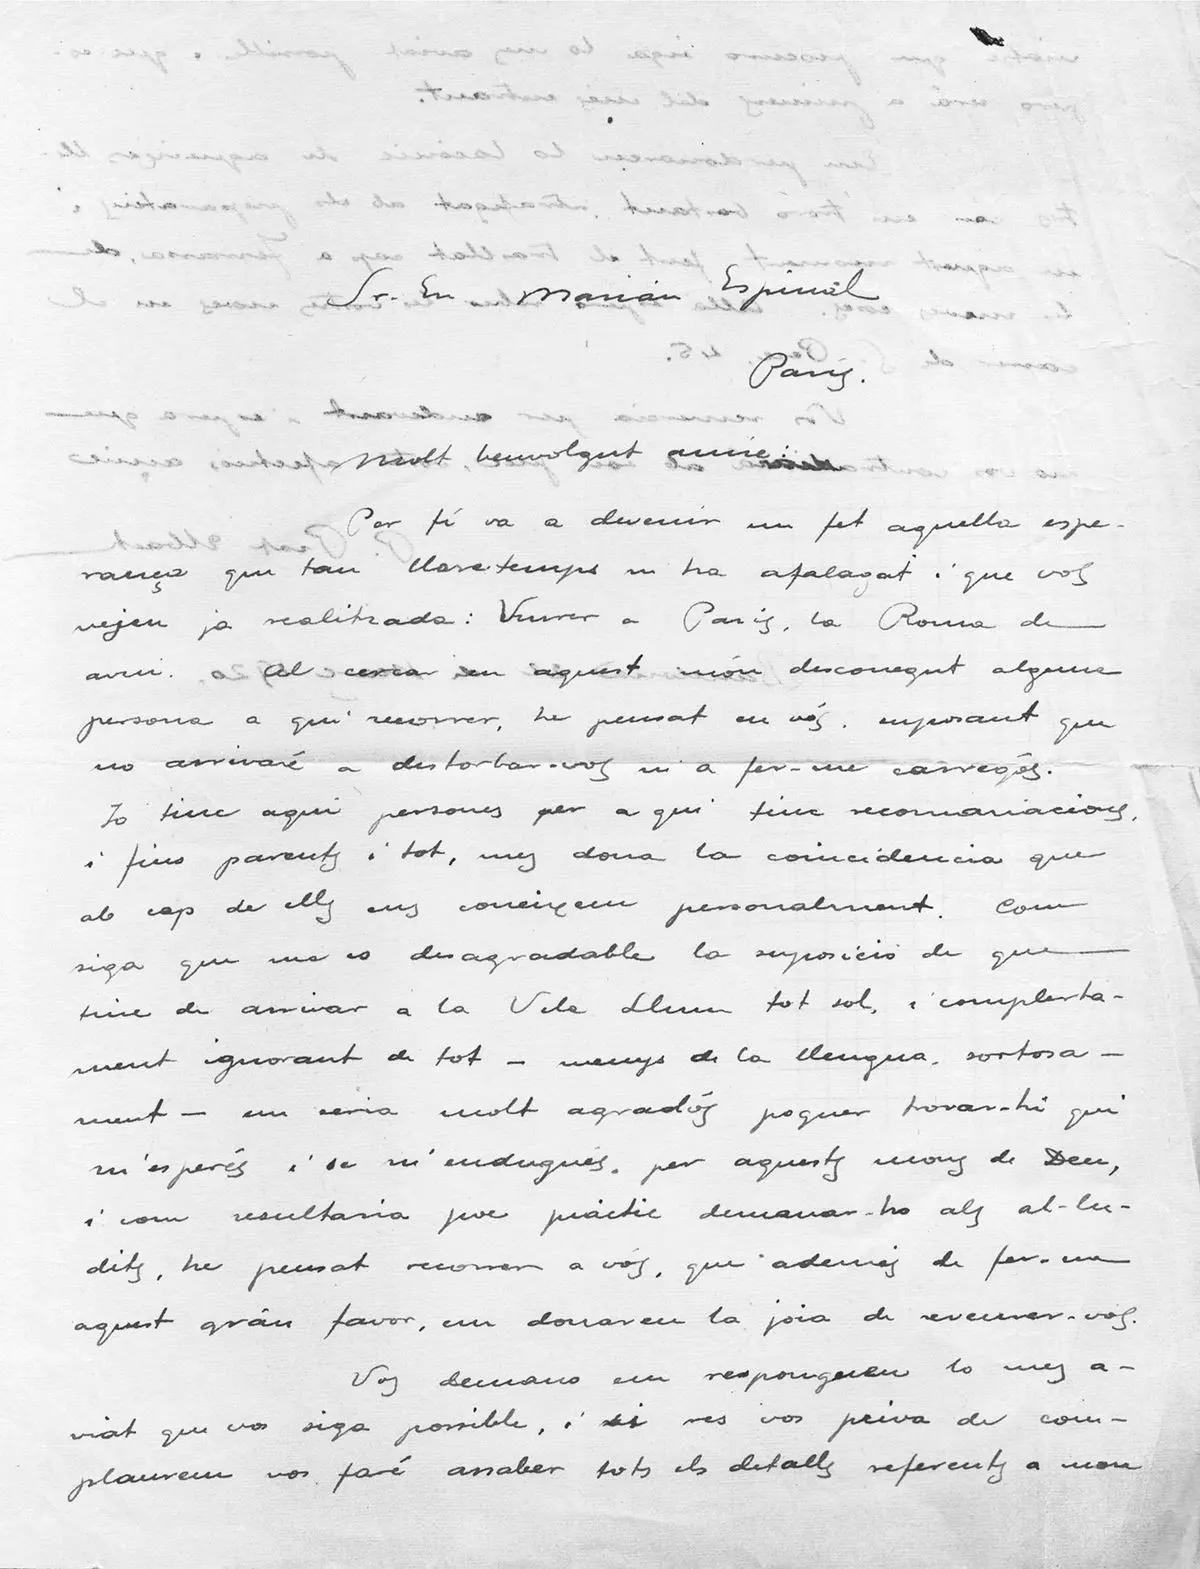 Sr. En Marián Espinal
París.
Molt benvolgut amic:
Per fí va a devenir un fet aquella espe-
rança que tan llarc temps m ha afalagat i que vos
vejeu ja realitzada: Viurer a París, la Roma de
avui. Al cercar en aquest món desconegut alguna
persona a qui recorrer, he pensat en vós, suposant que
no arrivaré a destorbar-vos ni a fer-me carregós.
Jo tinc aquí persones per a qui tinc recomanacions,
i fins parents i tot, mes dona la coincidencia que
ab cap de ells ens coneixem personalment. Com
siga que me es desagradable la suposició de que
tinc de arrivar a la Vila Llum tot sol, i complerta-
ment ignorant de tot – menys de la llengua, sortosa –
ment – em seria molt agradós poguer trovar-hi qui
m'esperés i se m'endugués, per aquests mons de Deu,
i com resultaria poc práctic demanar-ho als al-lu-
dits, he pensat recorrer a vós, que ademés de fer-me
aquest grán favor, em donareu la joia de reveurer-vos.
Vos demano em respongueu lo mes a-
viat que vos siga possible, i si res vos priva de com-
plaurem vos faré assaber tots els detalls referents a mon